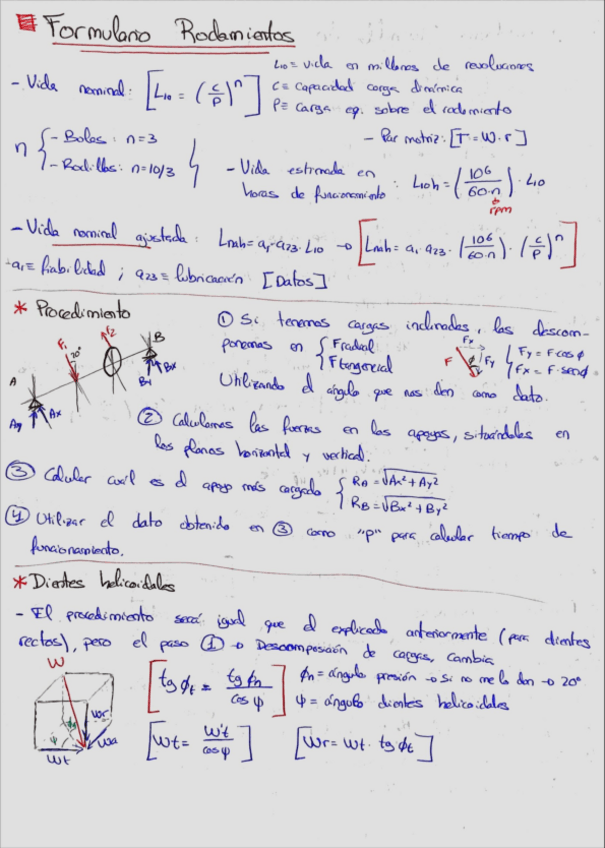 Formulario Rodamientos
- Vida nominal: [L10 = (C/P)^n]
L10 = vida en millones de revoluciones
C ≡ capacidad carga dinámica
P ≡ carga eq. sobre el rodamiento
n { - Bolas: n=3
- Rodillos: n=10/3
- Par motriz: [T = W·r]
- Vida estimada en horas de funcionamiento: L10h = (10^6/60·n) · L10
rpm
- Vida nominal ajustada: Lnah = a1·a23·L10 → [Lnah = a1 a23 · (10^6/60·n) · (C/P)^n]
- a1 ≡ fiabilidad ; a23 ≡ lubricación [Datos]
* Procedimiento
F1 20° F2 B Bx By A Ax Ay
① Si tenemos cargas inclinadas, las descom-
ponemos en { Fradial
Ftangencial
Fx F φ Fy { Fy = F cos φ
Fx = F·sen φ
Utilizando el ángulo que nos den como dato.
② Calculamos las fuerzas en los apoyos, situándolas en
los planos horizontal y vertical.
③ Calcular cuál es el apoyo más cargado { RA = √Ax² + Ay²
RB = √Bx² + By²
④ Utilizar el dato obtenido en ③ como "P" para calcular tiempo de
funcionamiento.
* Dientes helicoidales
- El procedimiento será igual que el explicado anteriormente (para dientes
rectos), pero el paso ① → Descomposición de cargas, cambia
W Wr Wa Wt
[tg φt = tg φn / cos ψ]
φn = ángulo presión → Si no me lo dan → 20°
ψ = ángulo dientes helicoidales
[Wt = Wt / cos ψ] [Wr = Wt · tg φt]